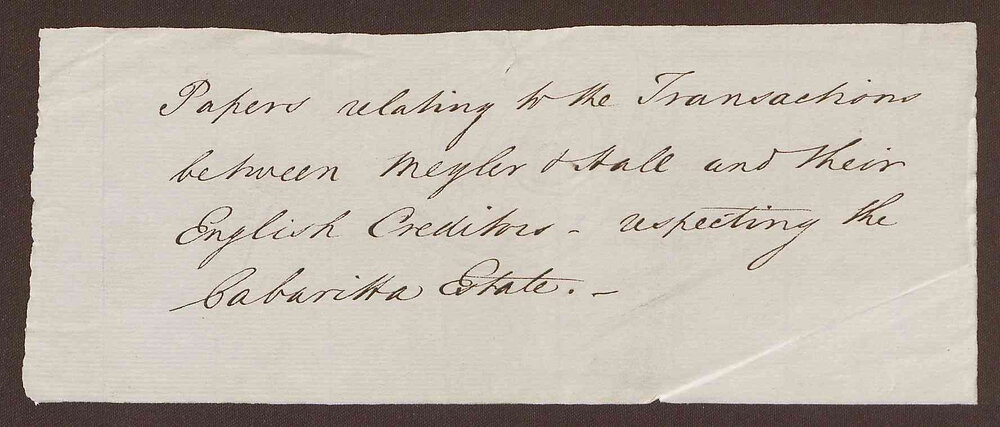 Papers relating to the Transactions
between Meyler & Hall and their
English Creditors - respecting the
Cabaritta Estate. -